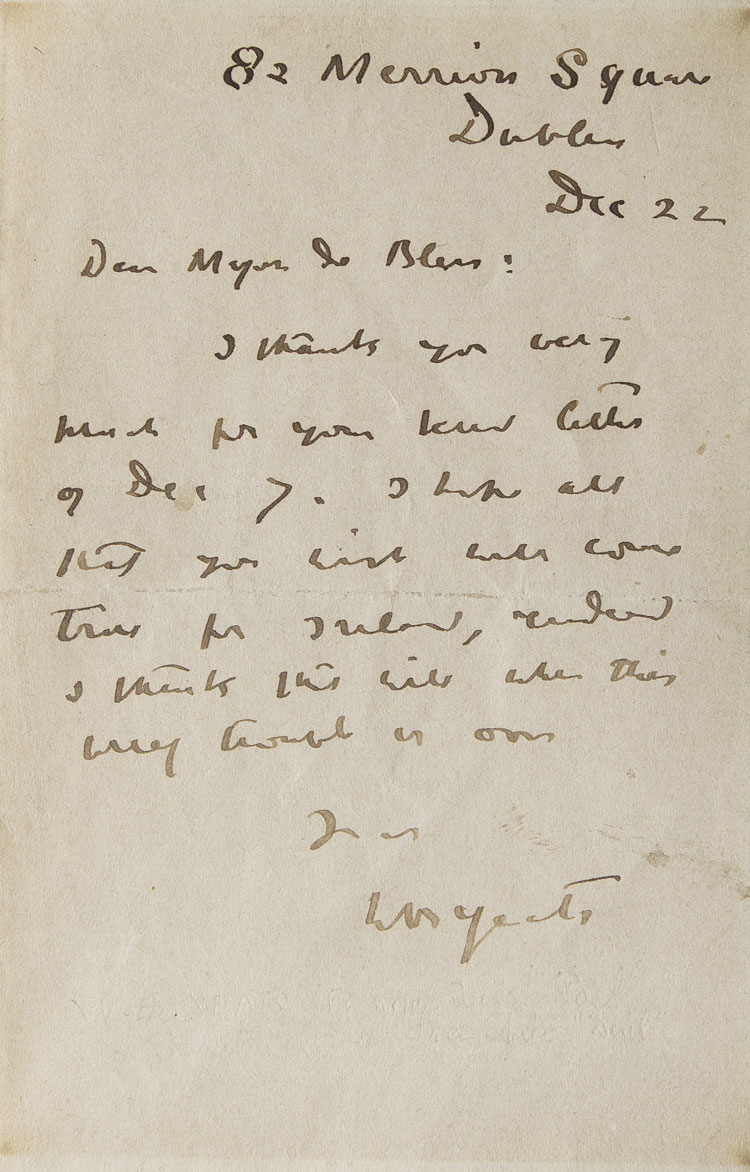 82 Merrion Square
Dublin
Dec 22
Dear Mayor de Blers:
I thank you very
much for your kind letter
of Dec 7. I hope all
that you wish will come
true for Ireland, &
I think it will when this
trouble is over
Yrs
WB Yeats